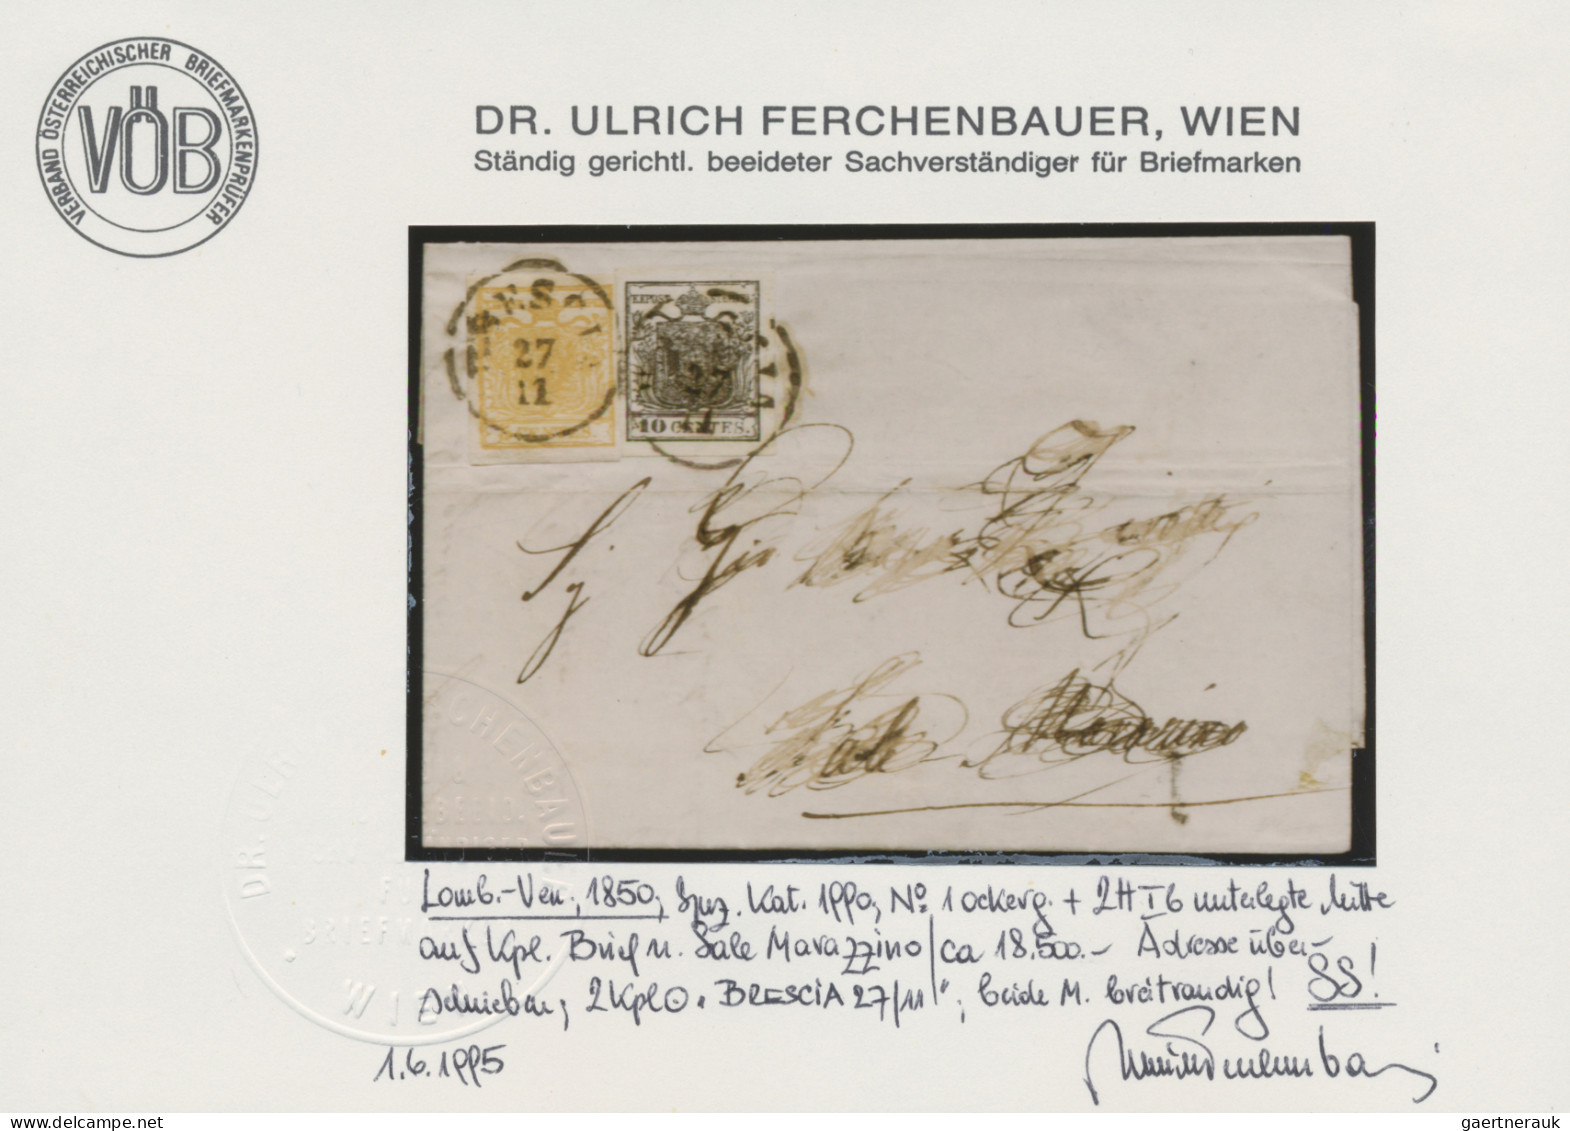 VERBAND ÖSTERREICHISCHER BRIEFMARKENPRÜFER
VÖB
DR. ULRICH FERCHENBAUER, WIEN
Ständig gerichtl. beeideter Sachverständiger für Briefmarken
BRESCIA
27
11
10 CENTES.
Sale
Lomb.-Ven., 1850; Spez. Kat. 1990, No 1 ockerg. + 2H I b unterlegte Mitte
auf kpl. Brief n. Sale Marazzino / ca 18.500.- Adresse über-
schrieben; 2 kpl ⊙ "BRESCIA 27/11"; beide M. breitrandig! SS!
1.6.1995
DR. ULRICH FERCHENBAUER
WIEN
www.delcampe.net
gaertnerauk